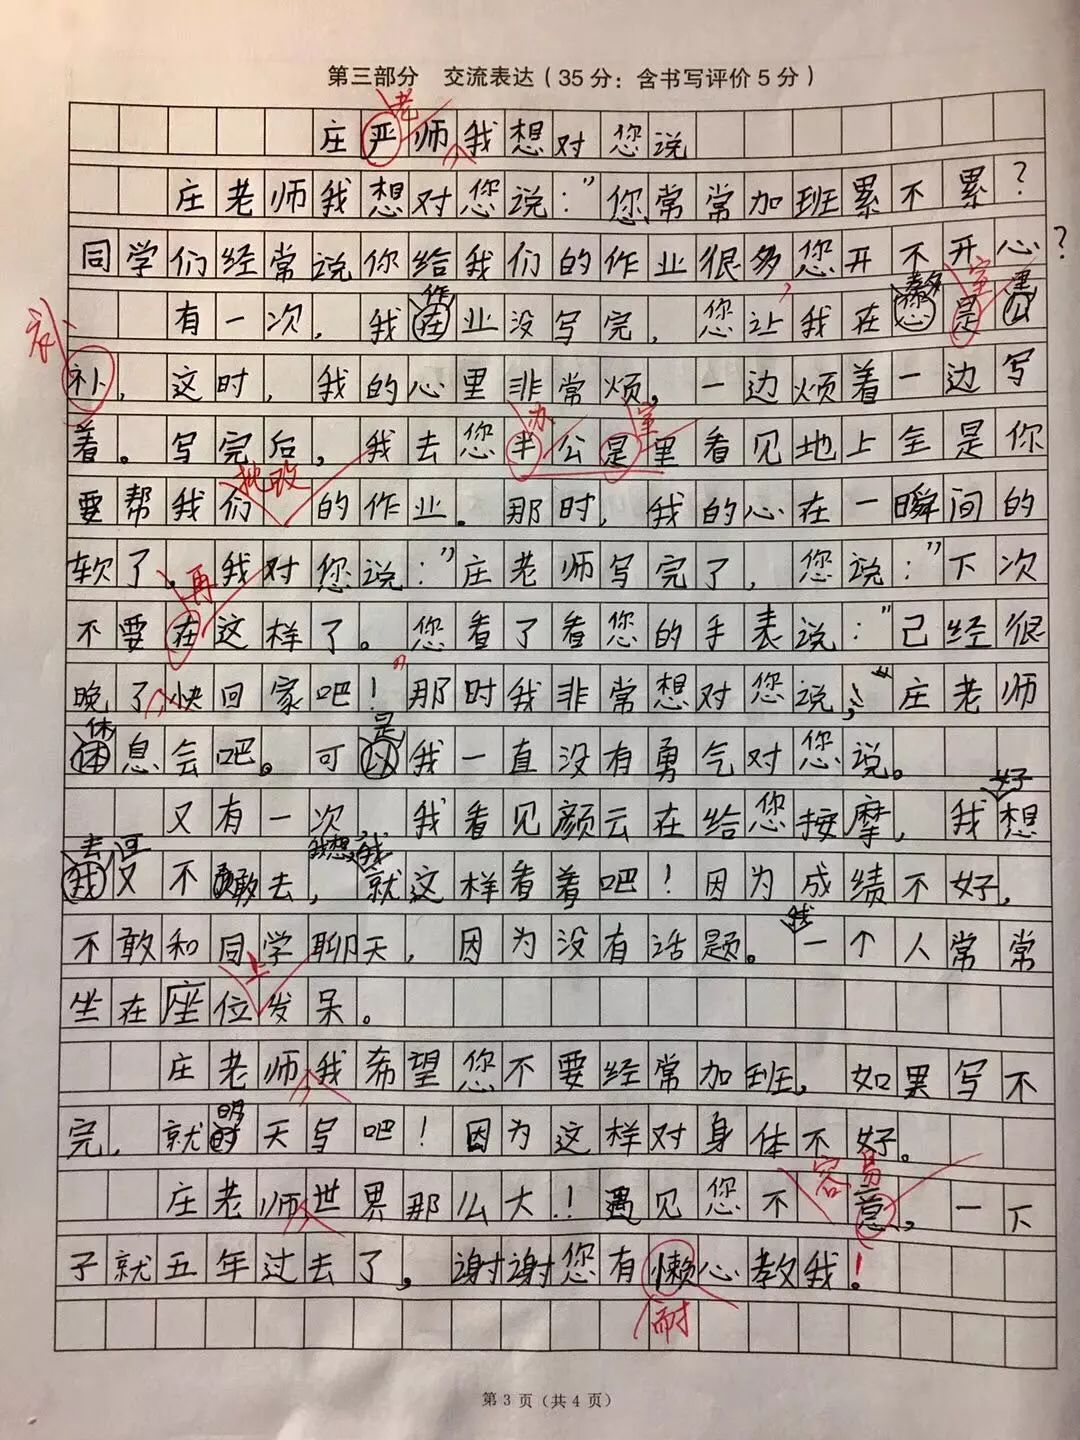 第三部分 交流表达（35分：含书写评价5分）
老
庄严师我想对您说
庄老师我想对您说：”您常常加班累不累？
同学们经常说你给我们的作业很多您开不开心？
作 教 室 里
有一次，我在业没写完，您让我在您是公
补，这时，我的心里非常烦，一边烦着一边写
办 室
着。写完后，我去您半公是里看见地上全是你
批改
要帮我们的作业。那时，我的心在一瞬间的
软了，我对您说：”庄老师写完了，您说：”下次
再
不要在这样了。您看了看您的手表说：“已经很
晚了快回家吧！”那时我非常想对您说，：“庄老师
休 是
体息会吧。可以我一直没有勇气对您说。
好
又有一次 我看见颜云在给您按摩，我想
去可 我想，我
我又不敢去，就这样看着吧！因为成绩不好，
我
不敢和同学聊天，因为没有话题。一个人常常
上
坐在座位发呆。
庄老师我希望您不要经常加班，如果写不
明
完，就时天写吧！因为这样对身体不好。
容易
庄老师世界那么大！遇见您不意，一下
子就五年过去了，谢谢您有懒心教我！
耐
第3页（共4页）